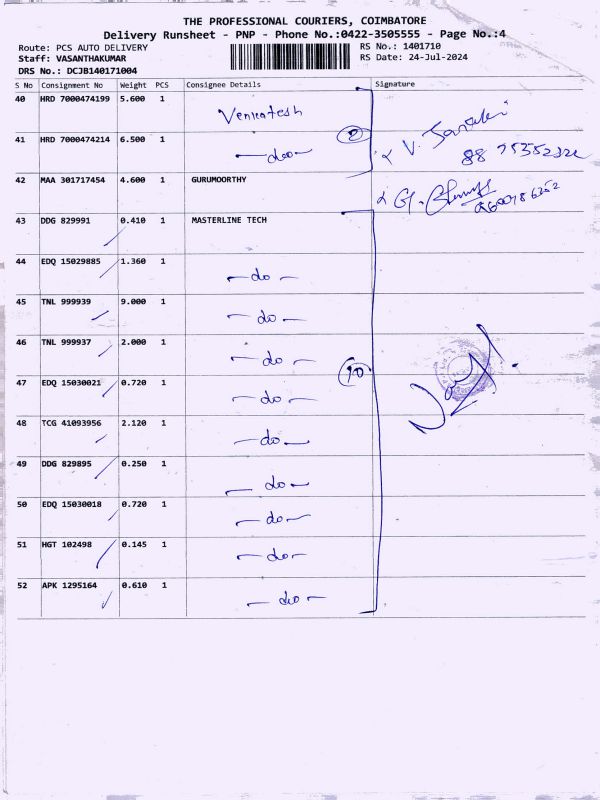 THE PROFESSIONAL COURIERS, COIMBATORE
Delivery Runsheet - PNP - Phone No.:0422-3505555 - Page No.:4
Route: PCS AUTO DELIVERY
RS No.: 1401710
Staff: VASANTHAKUMAR
RS Date: 24-Jul-2024
DRS No.: DCJB140171004
S No Consignment No Weight PCS Consignee Details Signature
40 HRD 7000474199 5.600 1 Venkatesh
41 HRD 7000474214 6.500 1 -do- 2
V.
42 MAA 301717454 4.600 1 GURUMOORTHY
43 DDG 829991 0.410 1 MASTERLINE TECH
44 EDQ 15029885 1.360 1 -do-
45 TNL 999939 9.000 1 -do-
46 TNL 999937 2.000 1 -do-
10
47 EDQ 15030021 0.720 1 -do-
48 TCG 41093956 2.120 1 -do-
49 DDG 829895 0.250 1 -do-
50 EDQ 15030018 0.720 1 -do-
51 HGT 102498 0.145 1 -do-
52 APK 1295164 0.610 1 -do-